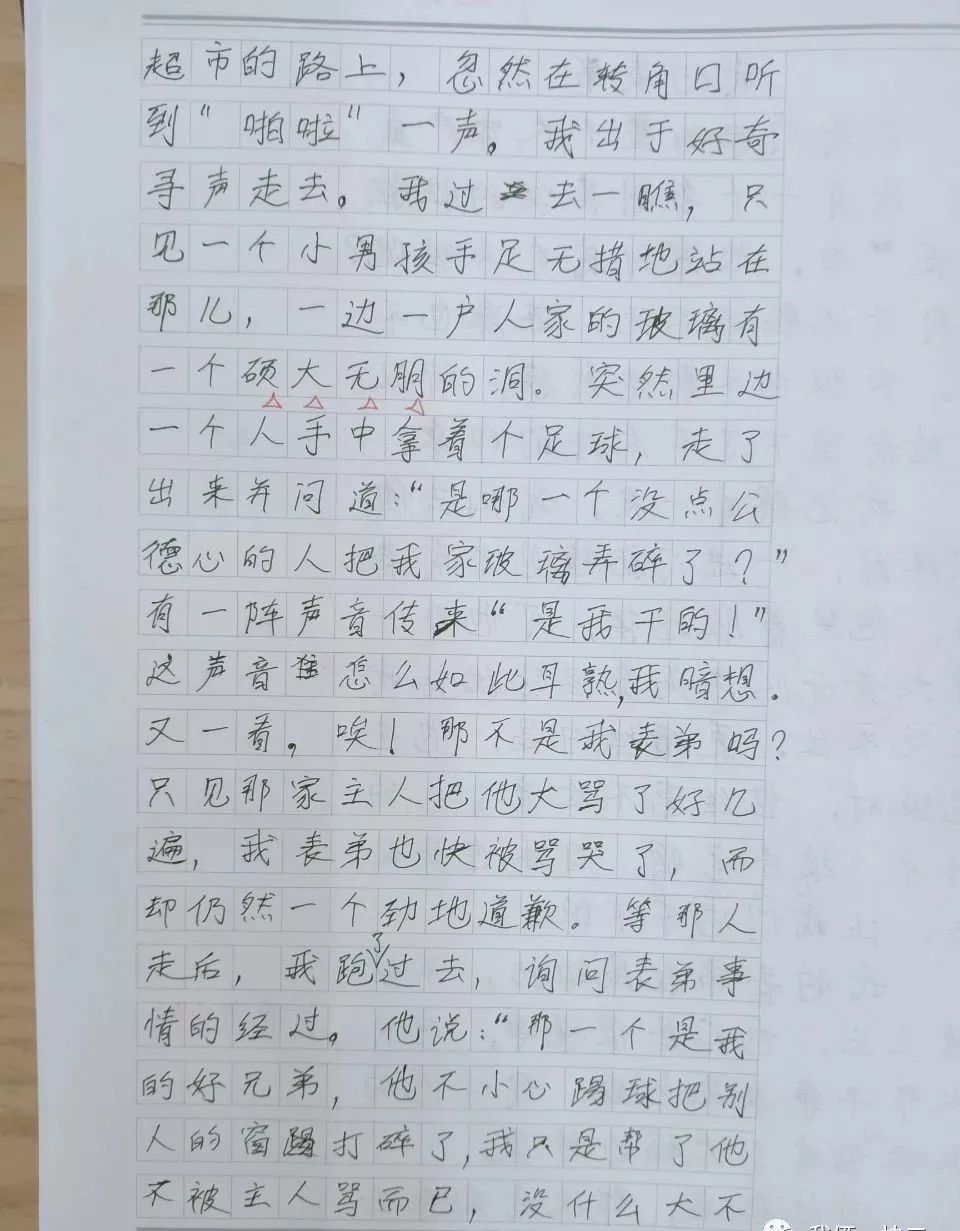 超市的路上，忽然在转角口听
到“啪啦”一声。我出于好奇
寻声走去。我过去一瞧，只
见一个小男孩手足无措地站在
那儿，一边一户人家的玻璃有
一个硕大无朋的洞。突然里边
一个人手中拿着个足球，走了
出来并问道：“是哪一个没点公
德心的人把我家玻璃弄碎了？”
有一阵声音传来“是我干的！”
这声音怎么如此耳熟，我暗想．
又一看。唉！那不是我表弟吗？
只见那家主人把他大骂了好几
遍，我表弟也快被骂哭了，而
却仍然一个劲地道歉。等那人
走后，我跑了过去，询问表弟事
情的经过。他说：“那一个是我
的好兄弟，他不小心踢球把别
人的窗打碎了，我只是帮了他
不被主人骂而已，没什么大不